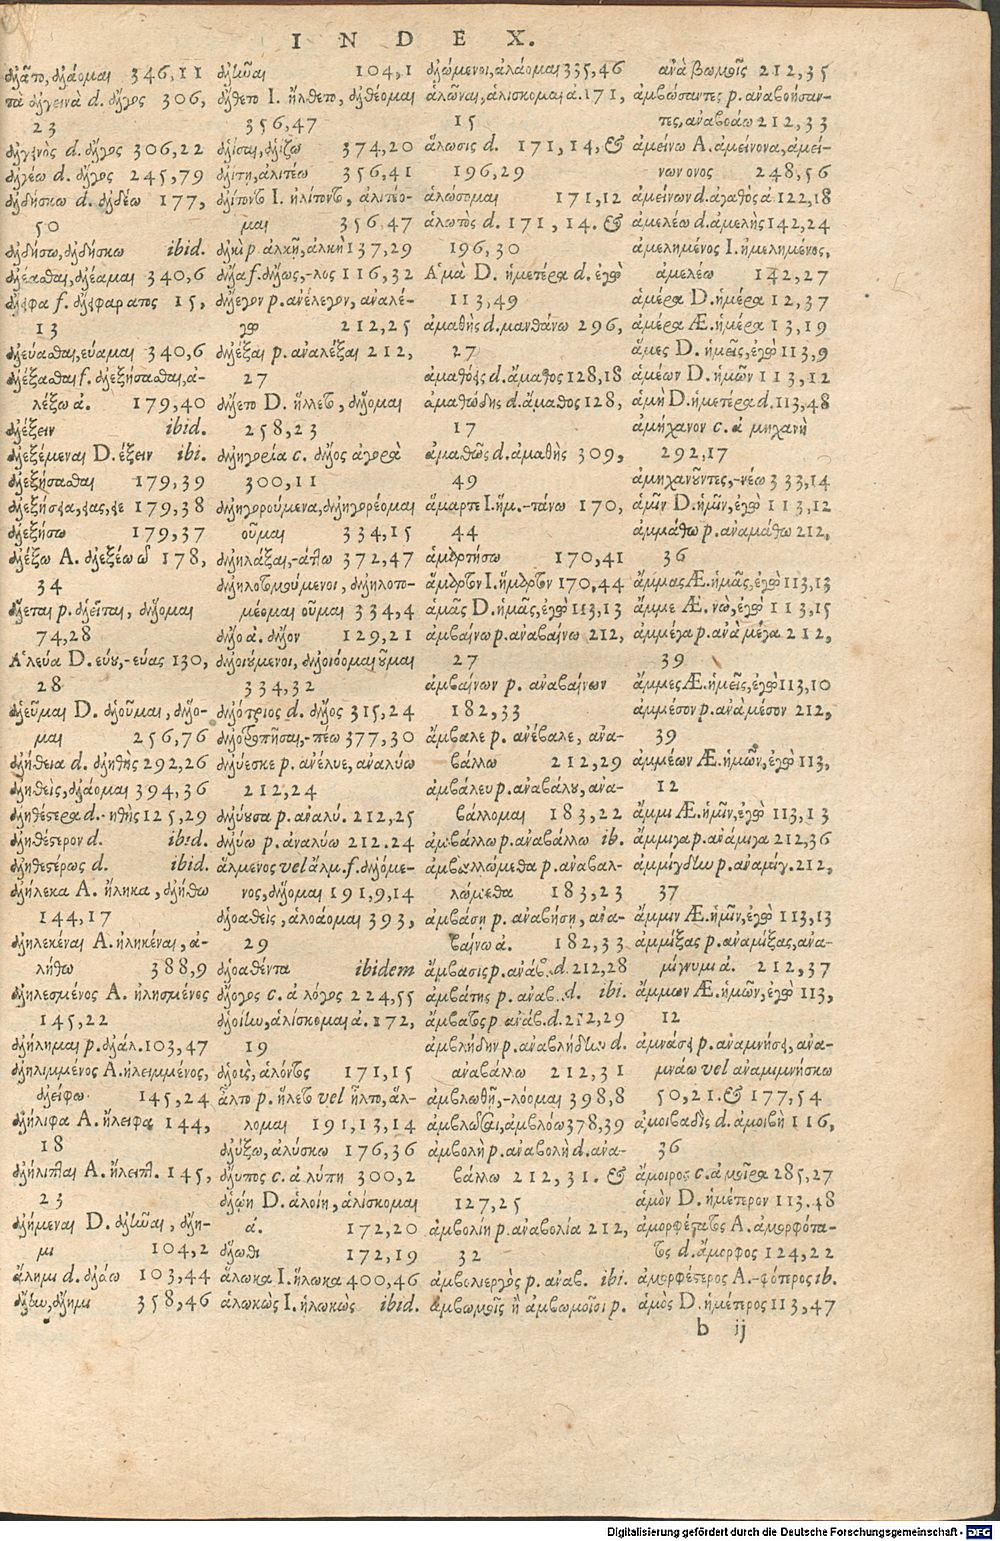 I N D E X.
ἀλᾶτο, ἀλάομαι 346,11
πὰ ἀλγεινὰ d. ἄλγος 306,
23
ἀλγεινὸς d. ἄλγος 306,22
ἀλγέω d. ἄλγος 245,79
ἀλδήσκω d. ἀλδέω 177,
50
ἀλδήσω, ἀλδήσκω ibid.
ἀλέαθαι, ἀλέαμαι 340,6
ἄλειφα f. ἄλειφαρ ατος 15,
13
ἀλεύαθαι, εύαμαι 340,6
ἀλέξαθαι f. ἀλεξήσαθαι, ἀ-
λέξω ἀ. 179,40
ἀλέξειν ibid.
ἀλεξέμεναι D. έξειν ibi.
ἀλεξήσαθαι 179,39
ἀλεξήσῃα, ῃας, ῃε 179,38
ἀλεξήσω 179,37
ἀλέξω A. ἀλεξέω ῶ 178,
34
ἄλεται p. ἁλεῖται, ἅλλομαι
74,28
Ἀλεύα D. εύου, -εύας 130,
28
ἁλεῦμαι D. ἁλοῦμαι, ἅλλο-
μαι 256,76
ἀλήθεια d. ἀληθής 292,26
ἀληθεὶς, ἀλάομαι 394,36
ἀληθέστερα d. -ηθὴς 125,29
ἀληθέστερον d. ibid.
ἀληθεστέρως d. ibid.
ἀλήλεκα A. ἤληκα, ἀλήθω
144,17
ἀληλεκέναι A. ἠληκέναι, ἀ-
λήθω 388,9
ἀληλεσμένος A. ἠλησμένος
145,22
ἀλήλημαι p. ἀλάλ. 103,47
ἀληλιμμένος A. ἠλειμμένος,
ἀλείφω 145,24
ἀλήλιφα A. ἤλειφα 144,
18
ἀλήλιπται A. ἤλειπτ. 145,
23
ἀλήμεναι D. ἀλῆναι, ἄλη-
μι 104,2
ἄλημι d. ἀλάω 103,44
ἄλην, ἄλημι 358,46
ἀλῆναι 104,1
ἄλθετο I. ἤλθετο, ἀλθέομαι
356,47
ἁλίσαι, ἁλίζω 374,20
ἀλίτῃ, ἀλιτέω 356,41
ἀλίτοντο I. ἠλίτοντο, ἀλιτέο-
μαι 356,47
ἀλκὶ p. ἀλκῇ, ἀλκὴ 137,29
ἄλλα f. ἄλλως, -λος 116,32
ἄλλεγον p. ἀνέλεγον, ἀναλέ-
γω 212,25
ἀλλέξαι p. ἀναλέξαι 212,
27
ἅλλετο D. ἥλλετο, ἅλλομαι
258,23
ἀλληγορία c. ἄλλος ἀγορὰ
300,11
ἀλληγορούμενα, ἀλληγορέομαι
οῦμαι 334,15
ἀλληλάξαι, -άττω 372,47
ἀλληλοτυπούμενοι, ἀλληλοτυ-
πέομαι οῦμαι 334,4
ἄλλο ἀ. ἄλλον 129,21
ἀλλοιούμενοι, ἀλλοιόομαι οῦμαι
334,32
ἀλλότριος d. ἄλλος 315,24
ἀλλοτροπῆσαι, -πέω 377,30
ἀλλύεσκε p. ἀνέλυε, ἀναλύω
212,24
ἀλλύουσα p. ἀναλύ. 212,25
ἀλλύω p. ἀναλύω 212.24
ἅλμενος vel ἄλμ. f. ἁλλόμε-
νος, ἅλλομαι 191,9,14
ἁλοαθεὶς, ἁλοάομαι 393,
29
ἁλοαθέντα ibidem
ἄλογος c. ἀ λόγος 224,55
ἁλοίην, ἁλίσκομαι ἀ. 172,
19
ἁλοὺς, ἁλόντος 171,15
ἆλτο p. ἥλετο vel ἧλτο, ἅλ-
λομαι 191,13,14
ἀλύξω, ἀλύσκω 176,36
ἄλυπος c. ἀ λύπη 300,2
ἁλῴη D. ἁλοίη, ἁλίσκομαι
ἀ. 172,20
ἅλωθι 172,19
ἅλωκα I. ἥλωκα 400,46
ἁλωκὼς I. ἡλωκὼς ibid.
ἀλώμενοι, ἀλάομαι 335,46
ἁλῶναι, ἁλίσκομαι ἀ. 171,
15
ἅλωσις d. 171,14, &
196,29
ἁλώσομαι 171,12
ἁλωτὸς d. 171,14. &
196,30
Ἁμὰ D. ἡμετέρα d. ἐγὼ
113,49
ἀμαθὴς d. μανθάνω 296,
27
ἀμαθόεις d. ἄμαθος 128,18
ἀμαθώδης d. ἄμαθος 128,
17
ἀμαθῶς d. ἀμαθὴς 309,
49
ἅμαρτε I. ἥμ. -τάνω 170,
44
ἁμαρτήσω 170,41
ἅμαρτον I. ἥμαρτον 170,44
ἁμᾶς D. ἡμᾶς, ἐγὼ 113,13
ἀμβαίνω p. ἀναβαίνω 212,
27
ἀμβαίνων p. ἀναβαίνων
182,33
ἄμβαλε p. ἀνέβαλε, ἀνα-
βάλλω 212,29
ἀμβάλευ p. ἀναβάλου, ἀνα-
βάλλομαι 183,22
ἀμβάλλω p. ἀναβάλλω ib.
ἀμβαλλώμεθα p. ἀναβαλ-
λώμεθα 183,23
ἀμβάσῃ p. ἀναβήσῃ, ἀνα-
βαίνω ἀ. 182,33
ἄμβασις p. ἀνάβ. d. 212,28
ἀμβάτης p. ἀναβ. d. ibi.
ἄμβατος p. ἀνάβ. d. 212,29
ἀμβλήδην p. ἀναβλήδην d.
ἀναβάλλω 212,31
ἀμβλωθῇ, -λόομαι 398,8
ἀμβλῶσαι, ἀμβλόω 378,39
ἀμβολὴ p. ἀναβολὴ d. ἀνα-
βάλλω 212,31. &
127,25
ἀμβολίη p. ἀναβολία 212,
32
ἀμβολιεργὸς p. ἀναβ. ibi.
ἀμβωμοῖς ἢ ἀμβωμοῖσι p.
ἀνὰ βωμοῖς 212,35
ἀμβώσαντες p. ἀναβοήσαν-
τες, ἀναβοάω 212,33
ἀμείνω A. ἀμείνονα, ἀμεί-
νων ονος 248,56
ἀμείνων d. ἀγαθὸς ἀ. 122,18
ἀμελέω d. ἀμελὴς 142,24
ἀμελημένος I. ἠμελημένος,
ἀμελέω 142,27
ἁμέρα D. ἡμέρα 12,37
ἀμέρα Æ. ἡμέρα 13,19
ἅμες D. ἡμεῖς, ἐγὼ 113,9
ἁμέων D. ἡμῶν 113,12
ἀμὴ D. ἡμετέρα d. 113,48
ἀμήχανον c. ἀ μηχανὴ
292,17
ἀμηχανοῦντες, -νέω 333,14
ἁμῖν D. ἡμῖν, ἐγὼ 113,12
ἀμμάθω p. ἀναμάθω 212,
36
ἄμμας Æ. ἡμᾶς, ἐγὼ 113,13
ἄμμε Æ. νὼ, ἐγὼ 113,15
ἀμμέγα p. ἀνὰ μέγα 212,
39
ἄμμες Æ. ἡμεῖς, ἐγὼ 113,10
ἀμμέσον p. ἀνὰ μέσον 212,
39
ἀμμέων Æ. ἡμῶν, ἐγὼ 113,
12
ἄμμι Æ. ἡμῖν, ἐγὼ 113,13
ἄμμιγα p. ἀνάμιγα 212,36
ἀμμίγδην p. ἀναμίγ. 212,
37
ἄμμιν Æ. ἡμῖν, ἐγὼ 113,13
ἀμμίξας p. ἀναμίξας, ἀνα-
μίγνυμι ἀ. 212,37
ἄμμων Æ. ἡμῶν, ἐγὼ 113,
12
ἀμνάσει p. ἀναμνήσει, ἀνα-
μνάω vel ἀναμιμνήσκω
50,21. & 177,54
ἀμοιβαδὶς d. ἀμοιβὴ 116,
36
ἄμοιρος c. ἀ μοῖρα 285,27
ἁμὸν D. ἡμέτερον 113.48
ἀμορφέστατος A. ἀμορφότα-
τος d. ἄμορφος 124,22
ἀμορφέστερος A. -φότερος ib.
ἁμὸς D. ἡμέτερος 113,47
b ij
Digitalisierung gefördert durch die Deutsche Forschungsgemeinschaft - DFG